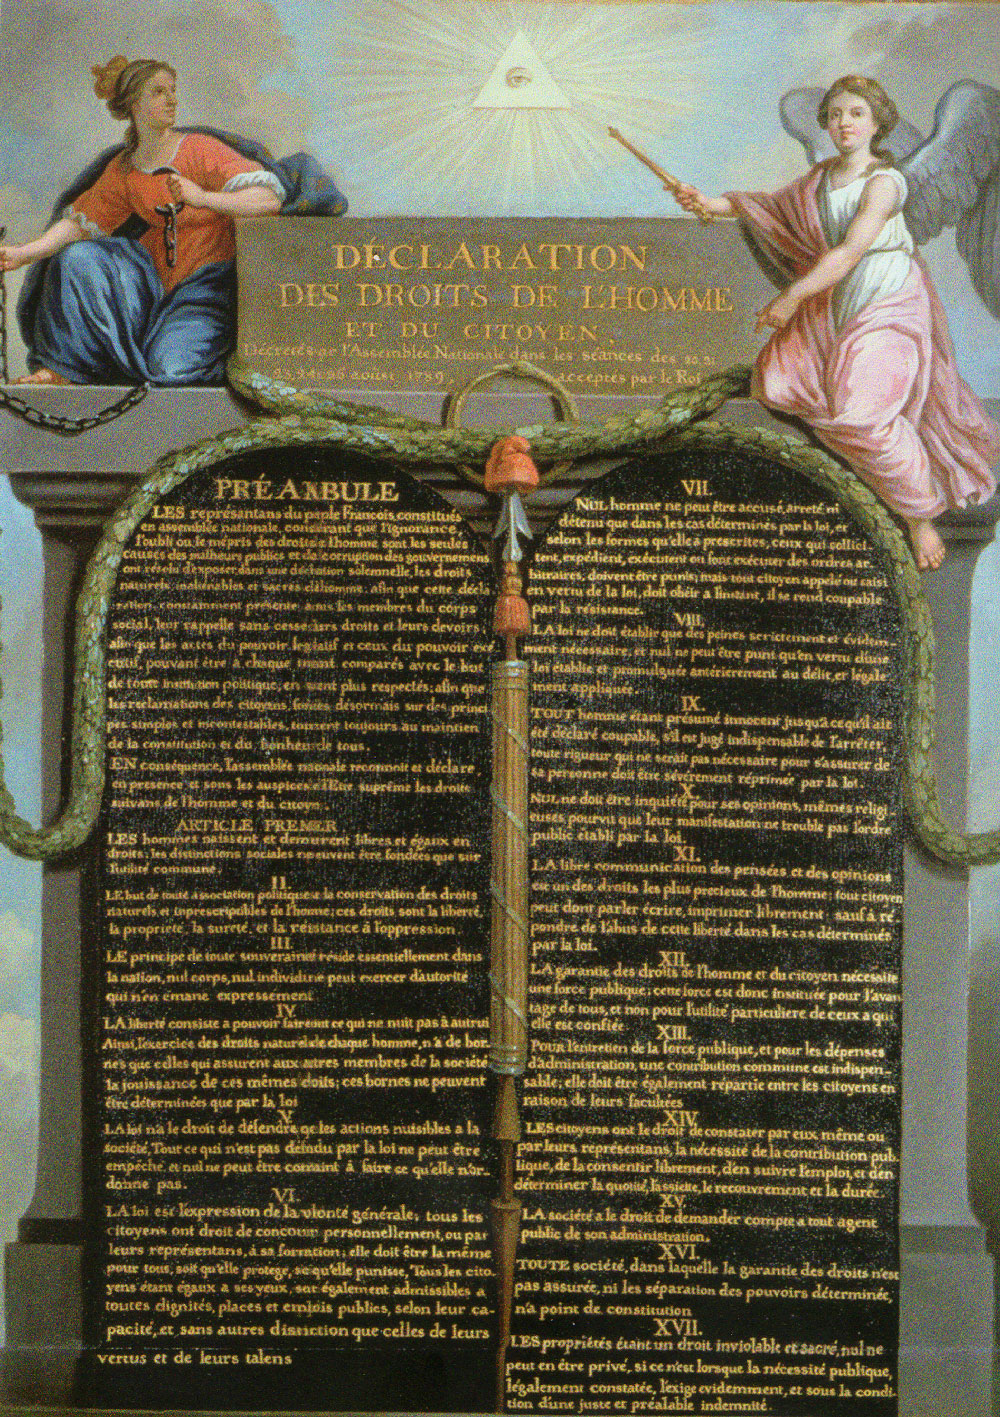 DÉCLARATION
DES DROITS DE L'HOMME
ET DU CITOYEN,
Décretés par l'Assemblée Nationale dans les séances des 20 21
23, 24, 26 aoust 1789, acceptés par le Roi
PRÉAMBULE
LES représentans du peuple François, constitués
en assemblée nationale, considérant que l'ignorance,
l'oubli ou le mépris des droits de l'homme sont les seules
causes des malheurs publics et de corruption des gouverne
ont résolu d'exposer dans une déclaration solemnelle, les droits
naturels, inaliénables et sacrés de l'homme: afin que cette décla
ration, constamment présente a tous les membres du corps
social, leur rappelle sans cesse leurs droits et leurs devoirs;
afin que les actes du pouvoir legislatif et ceux du pouvoir exé
cutif, pouvant être à chaque instant comparés avec le but
de toute institution politique, en soient plus respectés: afin que
les reclamations des citoyens, fondées désormais sur des princi
pes simples et incontestables, tournent toujours au maintien
de la constitution et du bonheur de tous.
EN conséquence, l'assemblée nationale reconnoit et déclare,
en presence et sous les auspices de l'Etre suprême les droits
suivans de l'homme et du citoyen.
ARTICLE PREMIER
LES hommes naissent et demeurent libres et égaux en
droits; les distinctions sociales ne peuvent être fondées que sur
l'utilité commune.
II.
LE but de toute association politique est la conservation des droits
naturels et inprescriptibles de l'homme; ces droits sont la liberté,
la propriété, la sureté, et la résistance à l'oppression.
III
LE principe de toute souveraineté réside essentiellement dans
la nation, nul corps, nul individu ne peut exercer d'autorité
qui n'en émane expressément
IV
LA liberté consiste a pouvoir faire tout ce qui ne nuit pas à autrui
Ainsi, l'exercice des droits naturels de chaque homme, n'a de bor
nes que celles qui assurent aux autres membres de la société
la jouissance de ces mêmes droits; ces bornes ne peuvent
être déterminées que par la loi
V
LA loi n'a le droit de défendre que les actions nuisibles a la
société. Tout ce qui n'est pas défendu par la loi ne peut être
empêché, et nul ne peut être contraint à faire ce qu'elle n'or-
donne pas.
VI.
LA loi est l'expression de la volonté générale; tous les
citoyens ont droit de concourir personnellement, ou par
leurs représentans, à sa formation; elle doit être la même
pour tous, soit qu'elle protege, soit qu'elle punisse. Tous les cito-
yens étant égaux à ses yeux, sont également admissibles a
toutes dignités, places et emplois publics, selon leur ca-
pacité, et sans autres distinction que celles de leurs
vertus et de leurs talens
VII.
NUL homme ne peut être accusé, arreté ni
détenu que dans les cas déterminés par la loi, et
selon les formes qu'elle à prescrites, ceux qui sollici-
tent, expédient, exécutent ou font exécuter des ordres ar-
bitraires, doivent être punis; mais tout citoyen appelé ou saisi
en vertu de la loi, doit obéir a l'instant, il se rend coupable
par la résistance.
VIII.
LA loi ne doit établir que des peines strictement et évidem-
ment nécessaire, et nul ne peut être puni qu'en vertu d'une
loi établie et promulguée antérierement au délit, et légale
ment appliquée.
IX.
TOUT homme étant présumé innocent jusqu'à ce qu'il ait
été déclaré coupable, s'il est jugé indispensable de l'arrêter,
toute rigueur qui ne serait pas nécessaire pour s'assurer de
sa personne doit être sévèrement réprimée par la loi.
X.
NUL ne doit être inquiété pour ses opinions, mêmes religi
euses pourvu que leur manifestation ne trouble pas l'ordre
public établi par la loi.
XI.
LA libre communication des pensées et des opinions
est un des droits les plus precieux de l'homme; tout citoyen
peut donc parler écrire, imprimer librement: sauf à ré
pondre de l'abus de cette liberté dans les cas déterminés
par la loi.
XII.
LA garantie des droits de l'homme et du citoyen nécessite
une force publique; cette force est donc instituée pour l'avan
tage de tous, et non pour l'utilité particuliere de ceux a qui
elle est confiée.
XIII.
POUR l'entretien de la force publique, et pour les dépenses
d'administration, une contribution commune est indispen-
sable; elle doit être également répartie entre les citoyens en
raison de leurs facultées
XIV.
LES citoyens ont le droit de constater par eux même ou
par leurs représentans, la nécessité de la contribution pub-
lique, de la consentir librement, d'en suivre l'emploi, et d'en
déterminer la quotité, l'assiette, le recouvrement et la durée.
XV.
LA société a le droit de demander compte a tout agent
public de son administration.
XVI.
TOUTE société, dans laquelle la garantie des droits n'est
pas assurée, ni les séparation des pouvoirs déterminée,
n'a point de constitution
XVII.
LES propriétés étant un droit inviolable et sacré, nul ne
peut en être privé, si ce n'est lorsque la nécessité publique,
légalement constatée, l'exige evidemment, et sous la condi-
tion d'une juste et préalable indemnité.